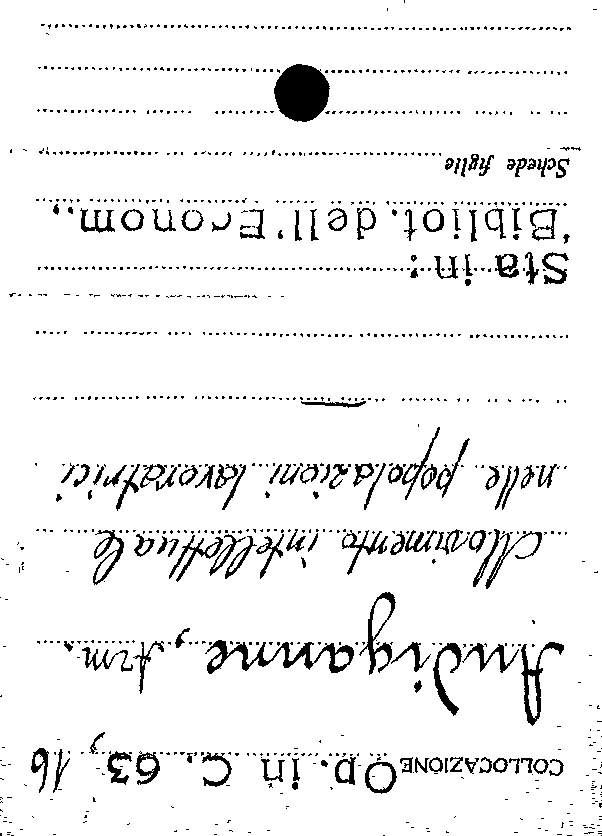 COLLOCAZIONE Op. in C. 63, 16
Audiganne, Arm.
Movimento intellettuale
nelle popolazioni lavoratrici
Sta in:
"Bibliot. dell'Econom.,
Schede figlie